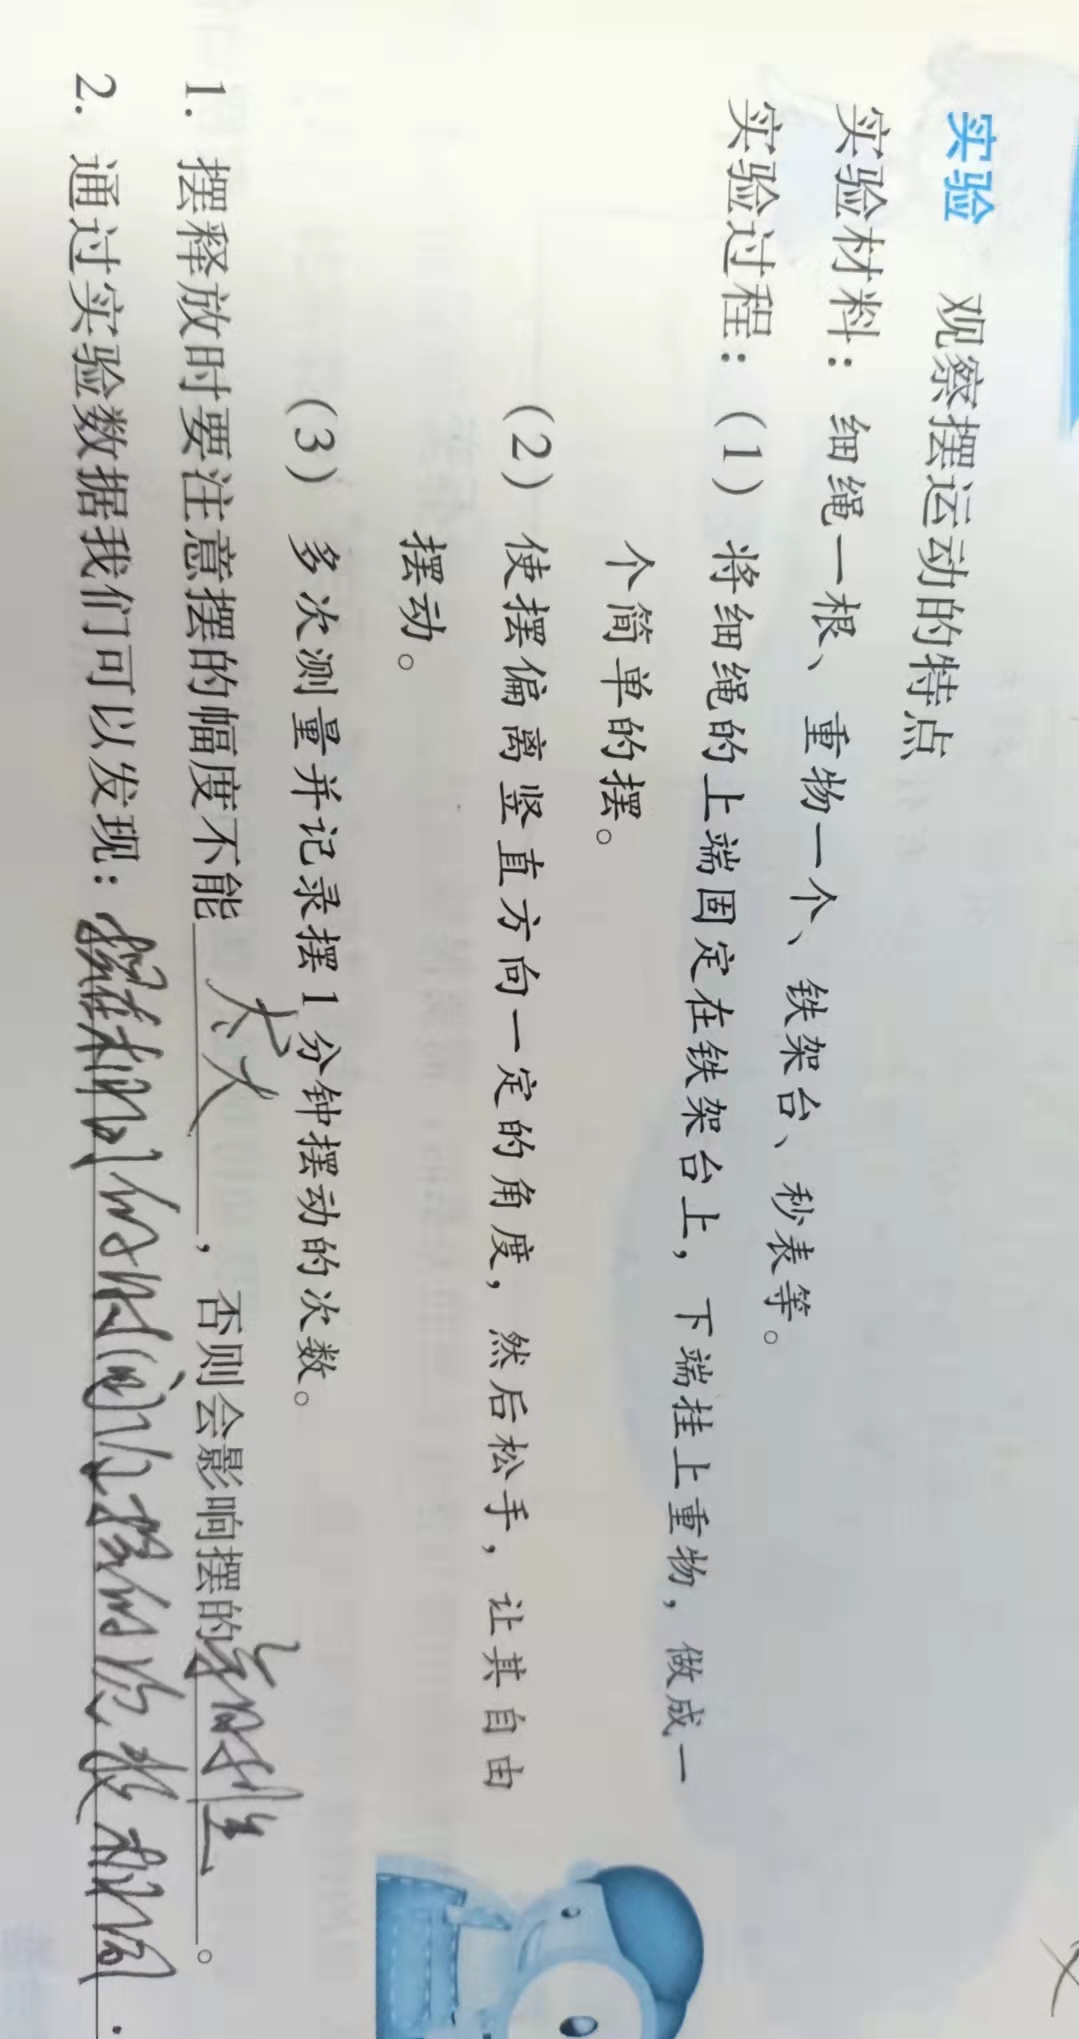 实验 观察摆运动的特点
实验材料：细绳一根、重物一个、铁架台、秒表等。
实验过程：（1）将细绳的上端固定在铁架台上，下端挂上重物，做成一
个简单的摆。
（2）使摆偏离竖直方向一定的角度，然后松手，让其自由
摆动。
（3）多次测量并记录摆1分钟摆动的次数。
1. 摆释放时要注意摆的幅度不能太大，否则会影响摆的等时性。
2. 通过实验数据我们可以发现：摆在相同的时间内摆的次数相同.